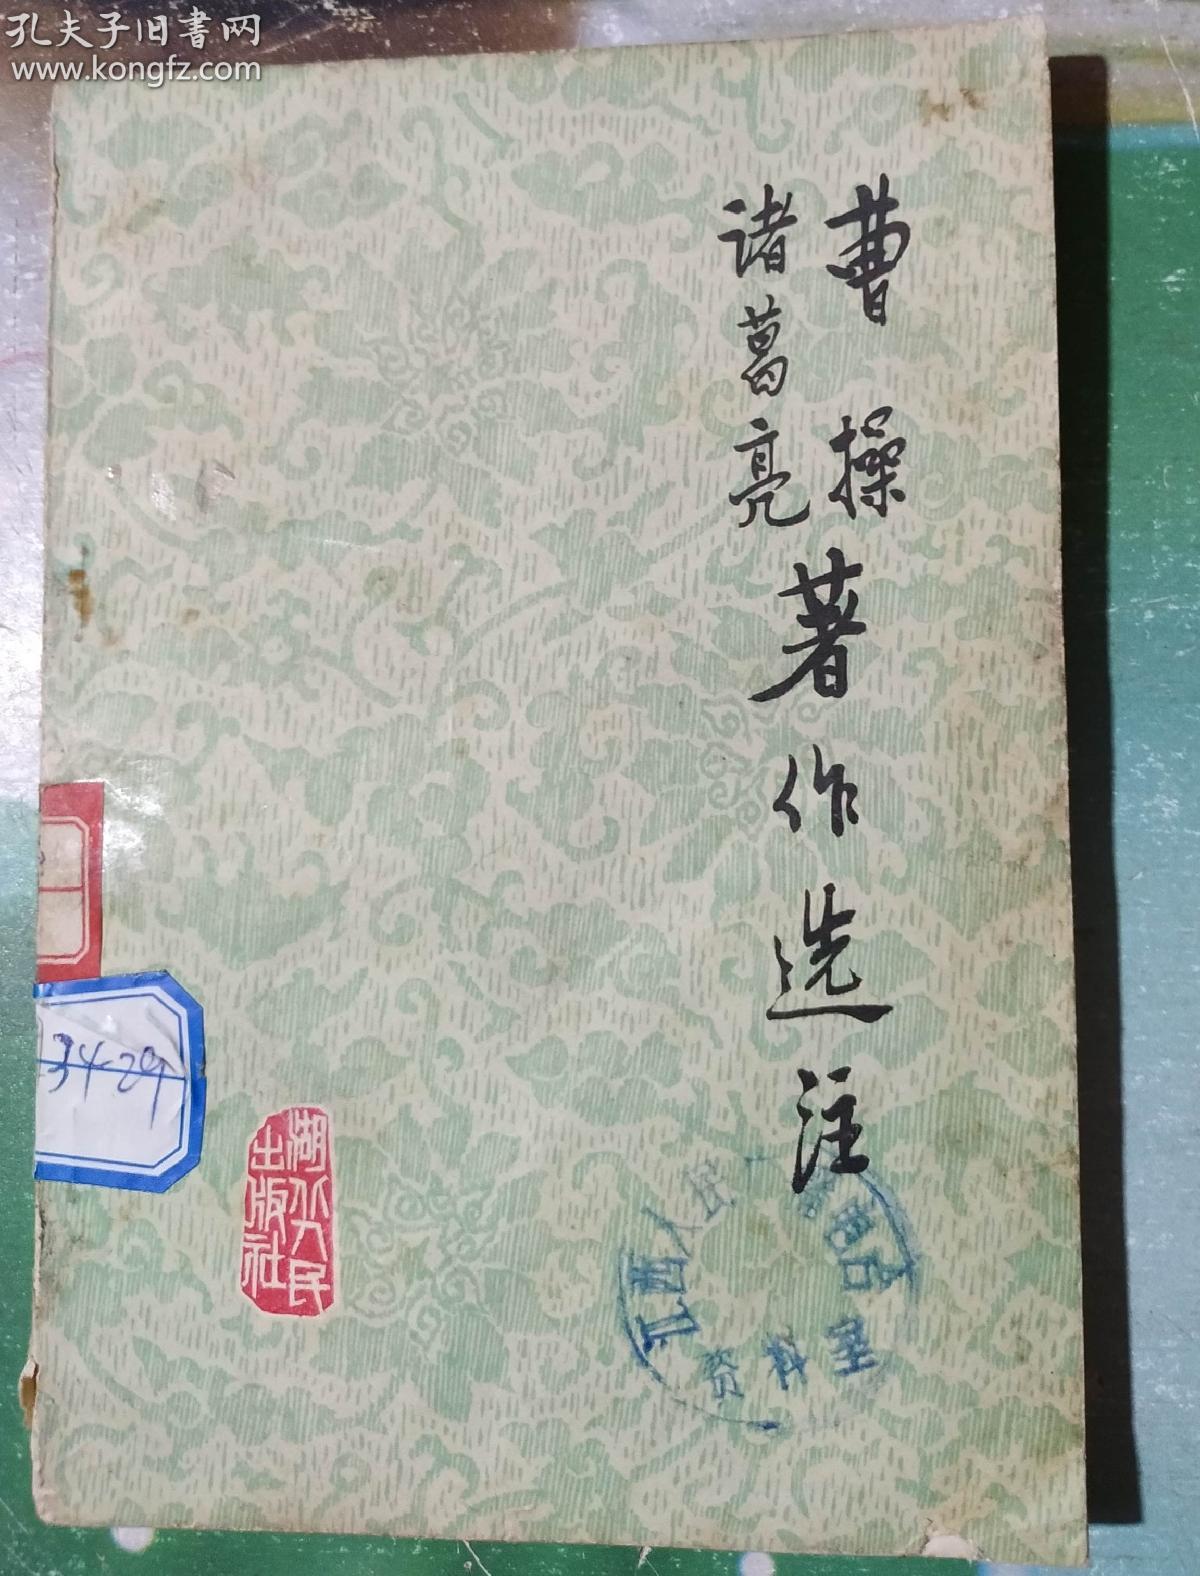 孔夫子旧書网
www.kongfz.com
曹操
诸葛亮
著作选注
34-29
湖北人民
出版社
江西人民
资料室